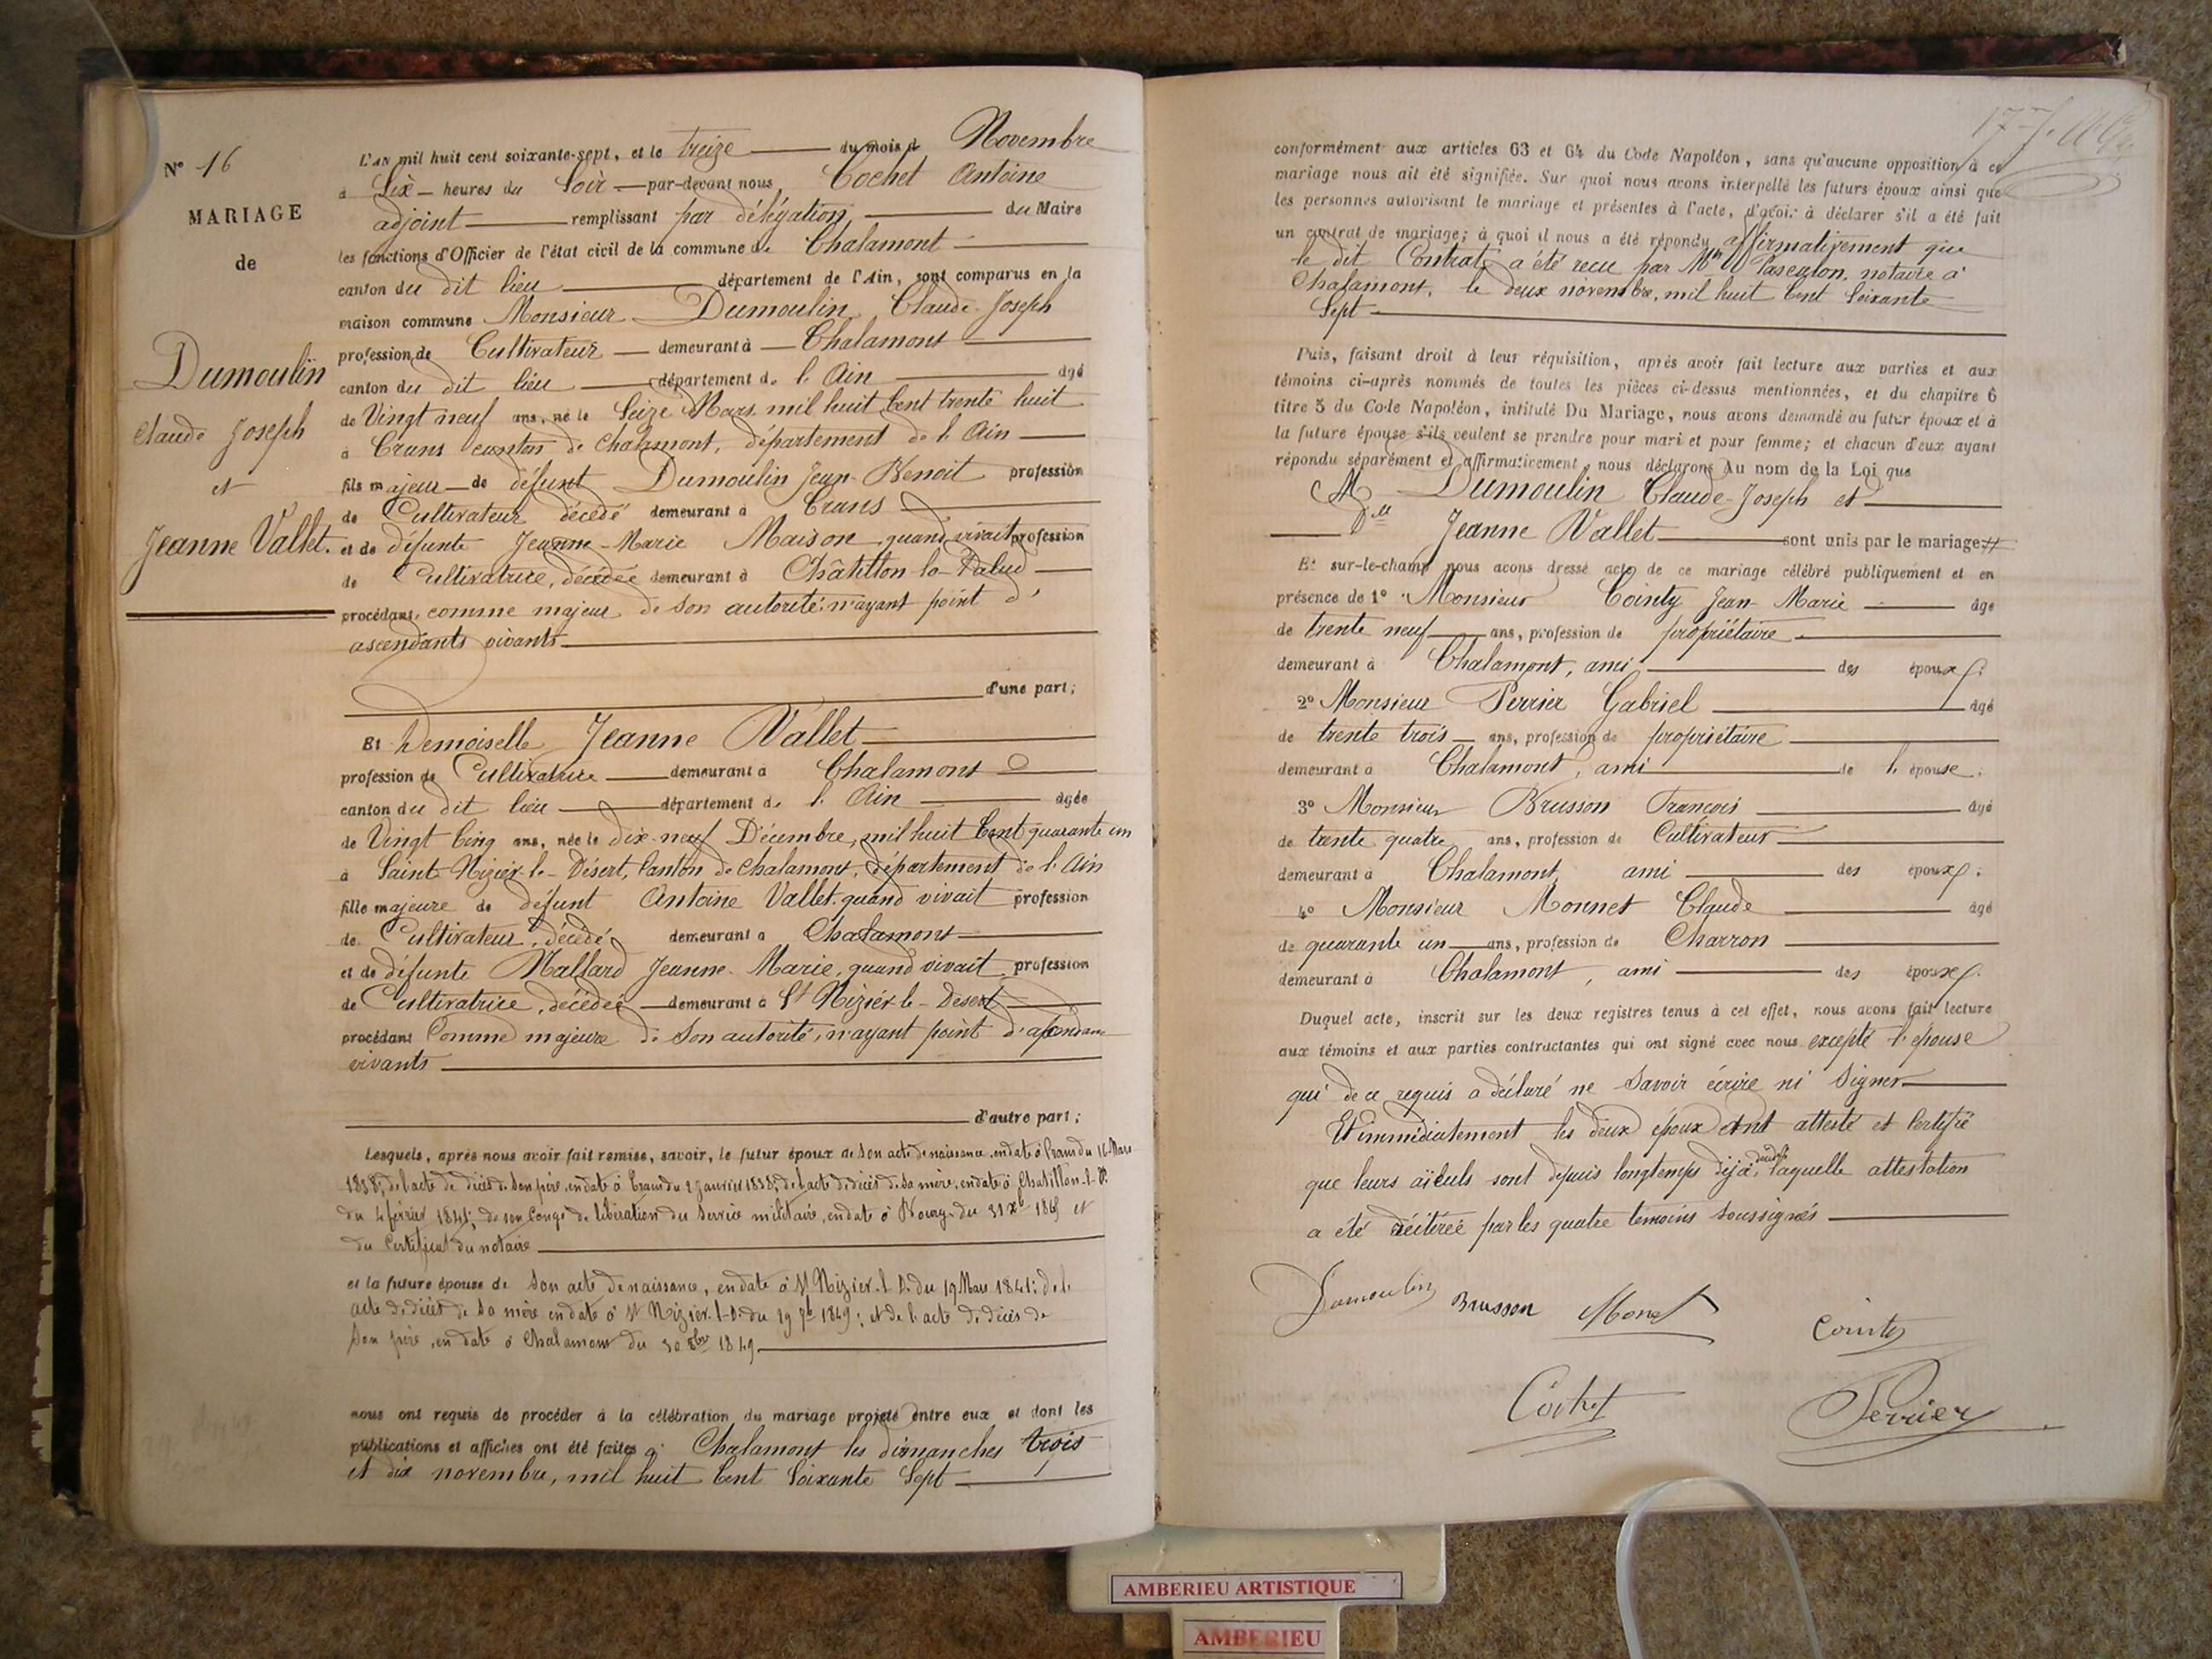 N° 16
MARIAGE
de
Dumoulin
Claude Joseph
et
Jeanne Vallet.
L'AN mil huit cent soixante-sept, et le treize du mois de Novembre
à Six heures du Soir par-devant nous, Cochet Antoine
adjoint remplissant par délégation, du Maire
les fonctions d'Officier de l'état civil de la commune de Chalamont
canton du dit lieu département de l'Ain, sont comparus en la
maison commune Monsieur Dumoulin Claude-Joseph
profession de Cultivateur demeurant à Chalamont
canton du dit lieu département de l'Ain âgé
de Vingt neuf ans, né le Seize Mars mil huit Cent trente huit
à Crans canton de Chalamont, département de l'Ain
fils majeur de défunt Dumoulin Jean-Benoit profession
de Cultivateur décédé demeurant à Crans
et de défunte Jeanne-Marie Maison quand vivait profession
de Cultivatrice, décédée demeurant à Châtillon-la-Palud
procédant comme majeur de son autorité, n'ayant point d'
ascendants vivants
d'une part;
Et Demoiselle Jeanne Vallet
profession de Cultivatrice demeurant à Chalamont
canton du dit lieu département de l'Ain âgée
de Vingt Cinq ans, née le dix-neuf Décembre, mil huit Cent quarante un
à Saint-Nizier-le-Désert, Canton de Chalamont, département de l'Ain
fille majeure de défunt Antoine Vallet quand vivait profession
de Cultivateur, décédé demeurant à Chalamont
et de défunte Mallard Jeanne-Marie, quand vivait profession
de Cultivatrice, décédée demeurant à St Nizier-le-Désert
procédant Comme majeure de son autorité, n'ayant point
vivants
d'autre part;
Lesquels, après nous avoir fait remise, savoir, le futur époux de son acte de naissance, en date à Crans du 16 Mars
1838; de l'acte de décès de son père, en date à Crans du 2 janvier 1838; de l'acte de décès de sa mère, en date à Chatillon-l-P.
du 4 février 1841; de son Congé de libération du service militaire, en date à Bourg du 31 Xbre et
du Certificat du notaire
et la future épouse de son acte de naissance, en date à St Nizier-l-D. du 19 1841; de l'
acte de décès de sa mère en date à St Nizier-l-D. du 19 1849; et de l'acte de décès de
son père, en date à Chalamont du 30 8bre 1849
nous ont requis de procéder à la célébration du mariage projeté entre eux et dont les
publications et affiches ont été faites à Chalamont les dimanches trois
et dix novembre, mil huit Cent Soixante Sept
conformément aux articles 63 et 64 du Code Napoléon, sans qu'aucune opposition à ce
mariage nous ait été signifiée. Sur quoi nous avons interpellé les futurs époux ainsi que
les personnes autorisant le mariage et présentes à l'acte, d'avoir à déclarer s'il a été fait
un contrat de mariage; à quoi il nous a été répondu affirmativement que
le dit Contrat a été reçu par Pascalon, notaire à
Chalamont, le deux novembre, mil huit Cent Soixante
Sept
Puis, faisant droit à leur réquisition, après avoir fait lecture aux parties et aux
témoins ci-après nommés de toutes les pièces ci-dessus mentionnées, et du chapitre 6
titre 5 du Code Napoléon, intitulé Du Mariage, nous avons demandé au futur époux et à
la future épouse s'ils veulent se prendre pour mari et pour femme; et chacun d'eux ayant
répondu séparément et affirmativement, nous déclarons Au nom de la Loi que
M Dumoulin Claude-Joseph et
Dlle Jeanne Vallet sont unis par le mariage
Et sur-le-champ nous avons dressé acte de ce mariage célébré publiquement et en
présence de 1° Monsieur Cointy Jean-Marie âgé
de trente neuf ans, profession de propriétaire
demeurant à Chalamont, ami des époux
2° Monsieur Perrier Gabriel âgé
de trente trois ans, profession de propriétaire
demeurant à Chalamont, ami de l'épouse;
3° Monsieur Brusson François âgé
de trente quatre ans, profession de Cultivateur
demeurant à Chalamont, ami des époux;
4° Monsieur Monnet Claude âgé
de quarante un ans, profession de Charron
demeurant à Chalamont, ami des époux.
Duquel acte, inscrit sur les deux registres tenus à cet effet, nous avons fait lecture
aux témoins et aux parties contractantes qui ont signé avec nous excepté l'épouse
qui de ce requis a déclaré ne savoir écrire ni signer
Et immédiatement les deux époux ont attesté et Certifié
que leurs aïeuls sont depuis longtemps déjà, laquelle attestation
a été réitérée par les quatre témoins soussignés
Dumoulin Brusson Monet Cointy
Cochet Perrier
AMBERIEU ARTISTIQUE
AMBERIEU